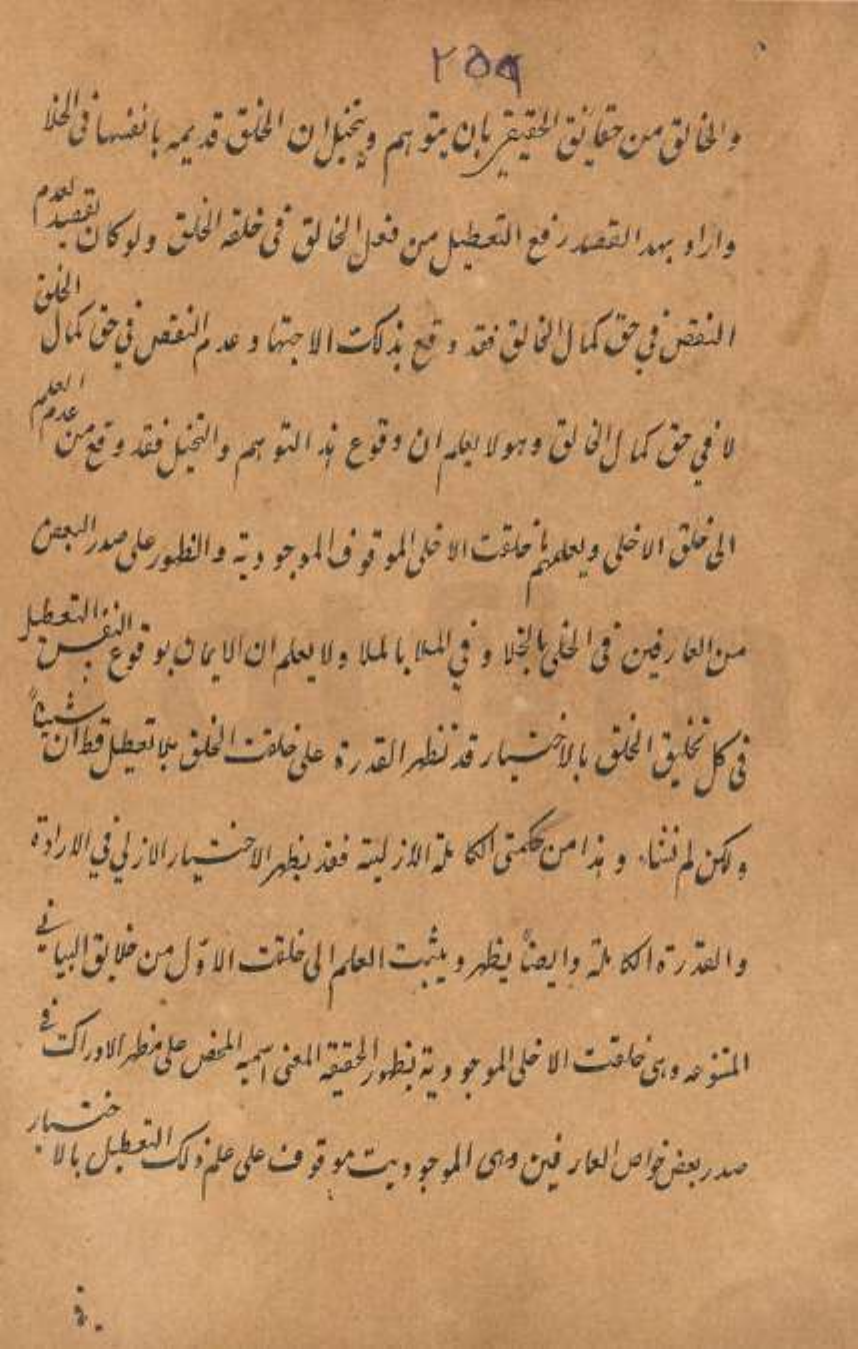 ٢٥٩
والخالق من حقايق الحقيقى بان يتوهم ويتخيل ان الخلق قديمه بانفسها فى الخلا
واراد بهذا القصد رفع التعطيل من فعل الخالق فى خلقه الخلق ولو كان لقصيد لعدم
النقص فى حق كمال الخالق فقد وقع بذلك الاجتهاد وعدم النقص فى حق كمال الخلق
لا فى حق كمال الخالق وهو لا يعلم ان وقوع هذا التوهم والتخيل فقد وقع من عدم العلم
الى خلق الاخلى ويعلمهم خلقت الاخلى الموقوف الموجودية والظهور على صدر البعض
من العارفين فى الخلى بالخلا وفى الملا بالملا ولا يعلم ان الايمان بوقوع النفس التعطيل
فى كل تخليق الخلق بالاختيار قد تظهر القدرة على خلقت الخلق بلا تعطيل قط ان شيئاً
ولكن لم نشاء وهذا من حكمتى الكاملة الازلية فقد يظهر الاختيار الازلي في الارادة
والقدرة الكاملة وايضاً يظهر ويثبت العلم الى خلقت الاوّل من خلايق البيانى فى
المتنوعه وهى خلقت الاخلى الموجودية بظهور الحقيقة المعنى اسميه المحض على مظهر الادراك فى
صدر بعض خواص العارفين وهى الموجوديت موقوف على علم ذلك التعطيل بالاختيار